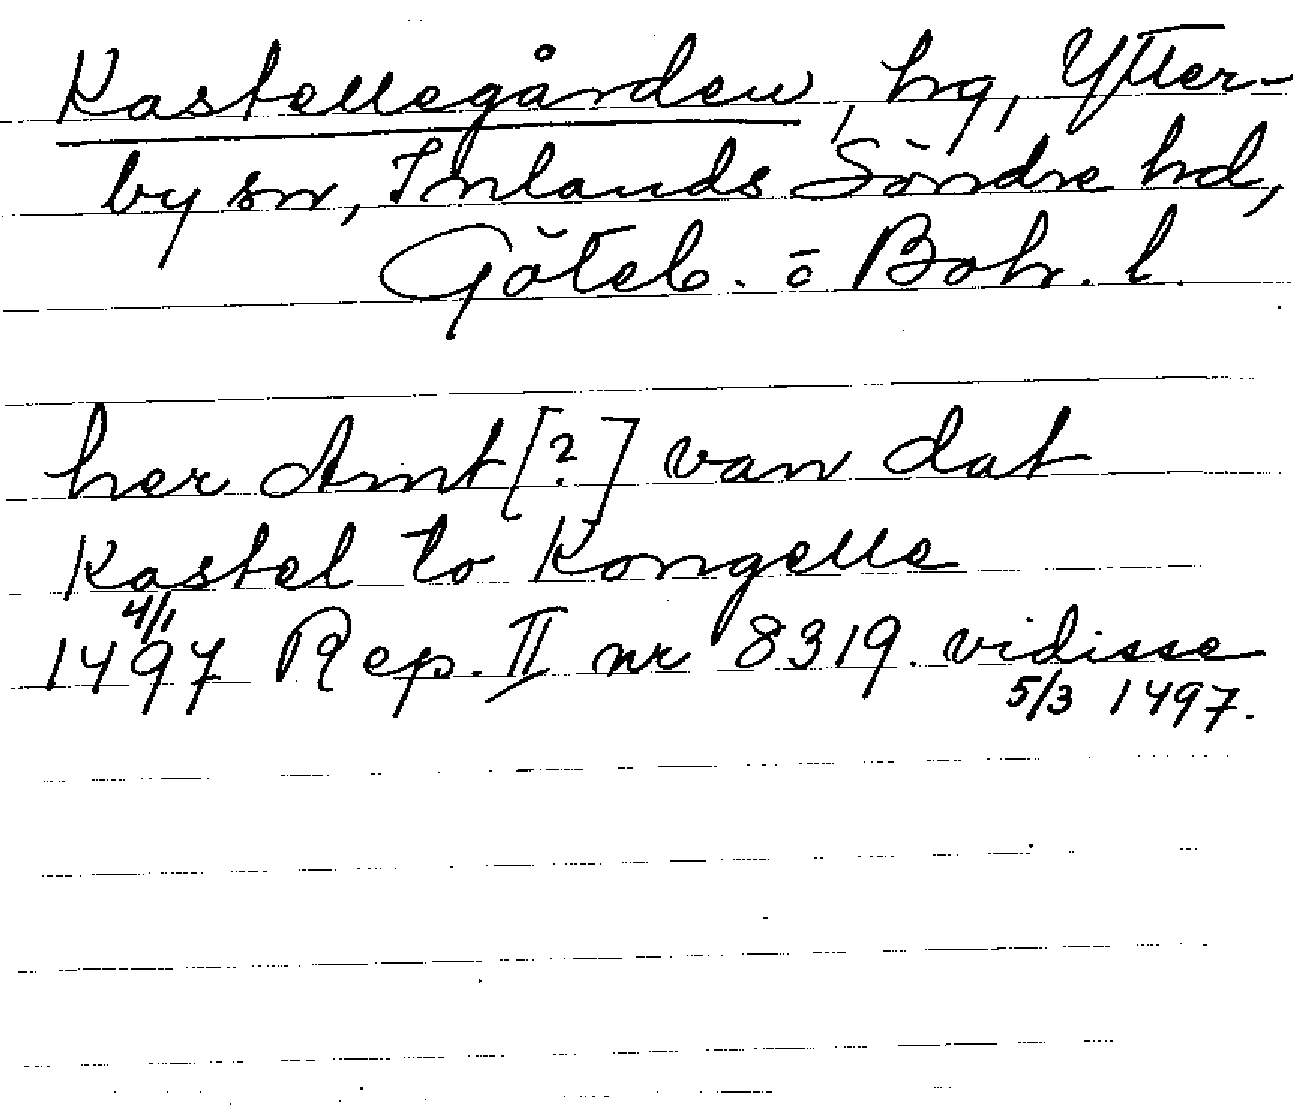 Kastellegården, hg, Ytter-
by sn, Inlands Södre hd,
Göteb. o Boh. l.
her Amt [?] van dat
Kastel to Kongelle
4/1
1497 Rep. II nr 8319. vidisse
5/3 1497.